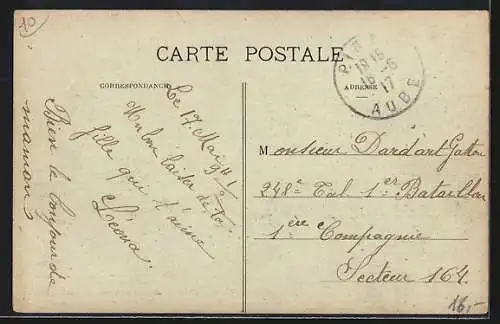 10
CARTE POSTALE
CORRESPONDANCE
ADRESSE
PINEY
18 15
16-5
17
AUBE
Le 17 Mai 9h 1/2
Un bon baiser de ta
fille qui t'aime
Léona
Bien le bonjour de
maman
Monsieur Dardart Gaston
248e Tal 1er Bataillon
1ère Compagnie
Secteur 164
16,-